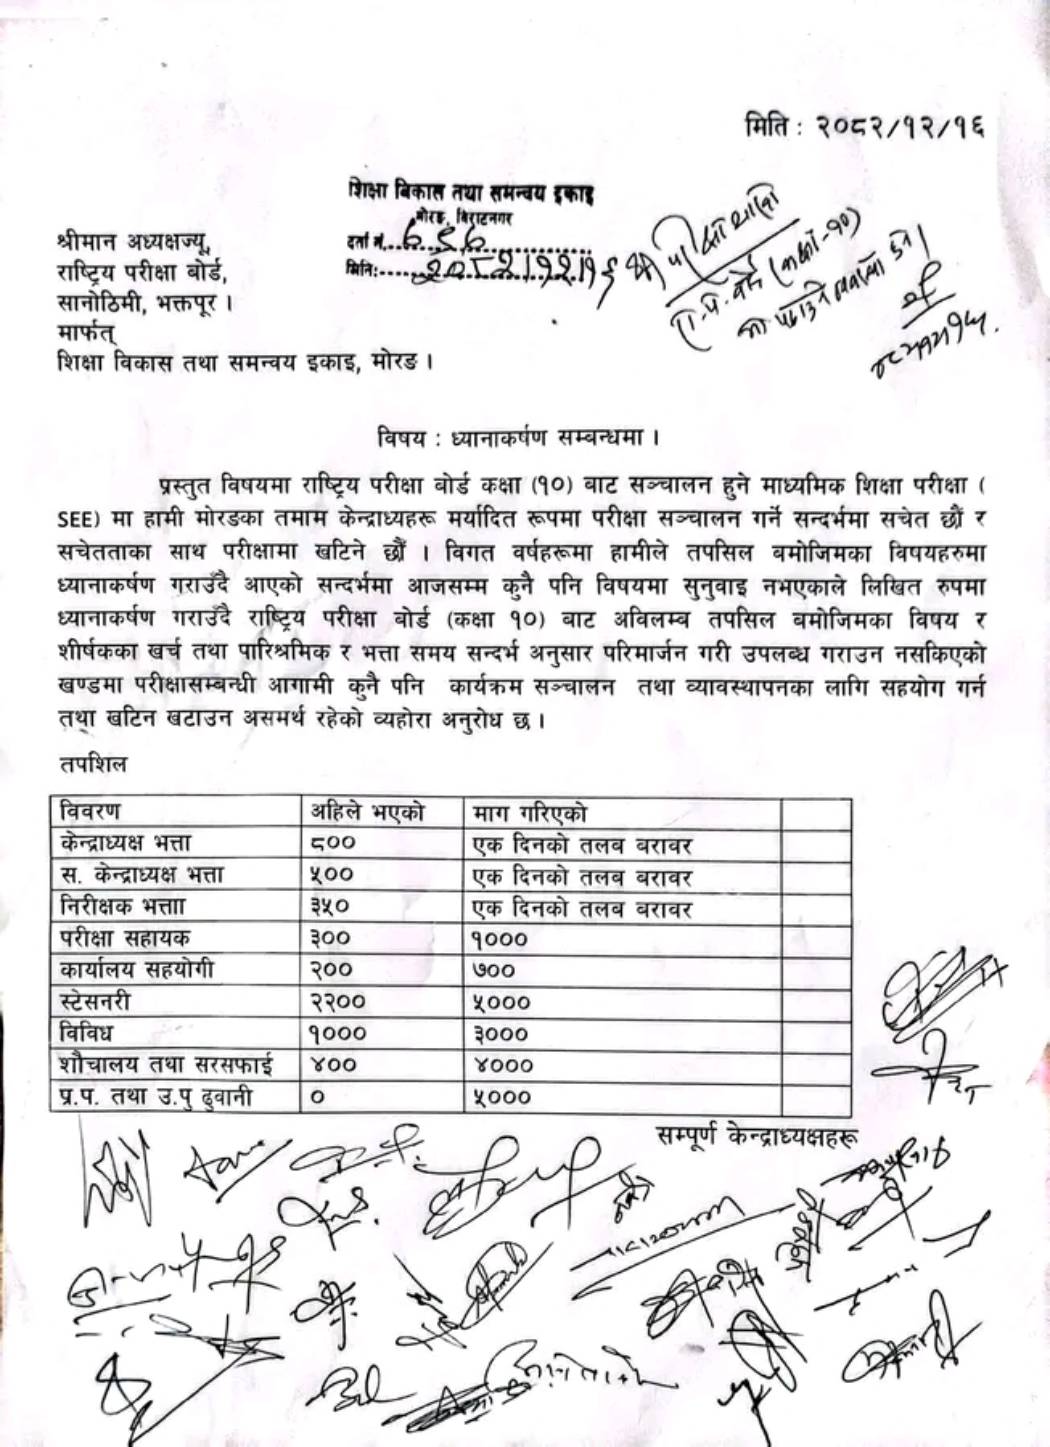 मिति : २०८२/१२/१६
शिक्षा विकास तथा समन्वय इकाइ
मोरङ, बिराटनगर
दर्ता नं.
मिति: २०८२।१२।१६
श्रीमान अध्यक्षज्यू,
राष्ट्रिय परीक्षा बोर्ड,
सानोठिमी, भक्तपूर ।
मार्फत्
शिक्षा विकास तथा समन्वय इकाइ, मोरङ ।
विषय : ध्यानाकर्षण सम्बन्धमा ।
प्रस्तुत विषयमा राष्ट्रिय परीक्षा बोर्ड कक्षा (१०) बाट सञ्चालन हुने माध्यमिक शिक्षा परीक्षा (
SEE) मा हामी मोरङका तमाम केन्द्राध्यहरू मर्यादित रूपमा परीक्षा सञ्चालन गर्ने सन्दर्भमा सचेत छौं र
सचेतताका साथ परीक्षामा खटिने छौं । विगत वर्षहरूमा हामीले तपसिल बमोजिमका विषयहरुमा
ध्यानाकर्षण गराउँदै आएको सन्दर्भमा आजसम्म कुनै पनि विषयमा सुनुवाइ नभएकाले लिखित रुपमा
ध्यानाकर्षण गराउँदै राष्ट्रिय परीक्षा बोर्ड (कक्षा १०) बाट अविलम्ब तपसिल बमोजिमका विषय र
शीर्षकका खर्च तथा पारिश्रमिक र भत्ता समय सन्दर्भ अनुसार परिमार्जन गरी उपलब्ध गराउन नसकिएको
खण्डमा परीक्षासम्बन्धी आगामी कुनै पनि कार्यक्रम सञ्चालन तथा व्यावस्थापनका लागि सहयोग गर्न
तथा खटिन खटाउन असमर्थ रहेको व्यहोरा अनुरोध छ ।
तपशिल
विवरण अहिले भएको माग गरिएको
केन्द्राध्यक्ष भत्ता ८०० एक दिनको तलब बरावर
स. केन्द्राध्यक्ष भत्ता ५०० एक दिनको तलब बरावर
निरीक्षक भत्ताा ३५० एक दिनको तलब बरावर
परीक्षा सहायक ३०० १०००
कार्यालय सहयोगी २०० ७००
स्टेसनरी २२०० ५०००
विविध १००० ३०००
शौचालय तथा सरसफाई ४०० ४०००
प्र.प. तथा उ.पु ढुवानी ० ५०००
सम्पूर्ण केन्द्राध्यक्षहरू